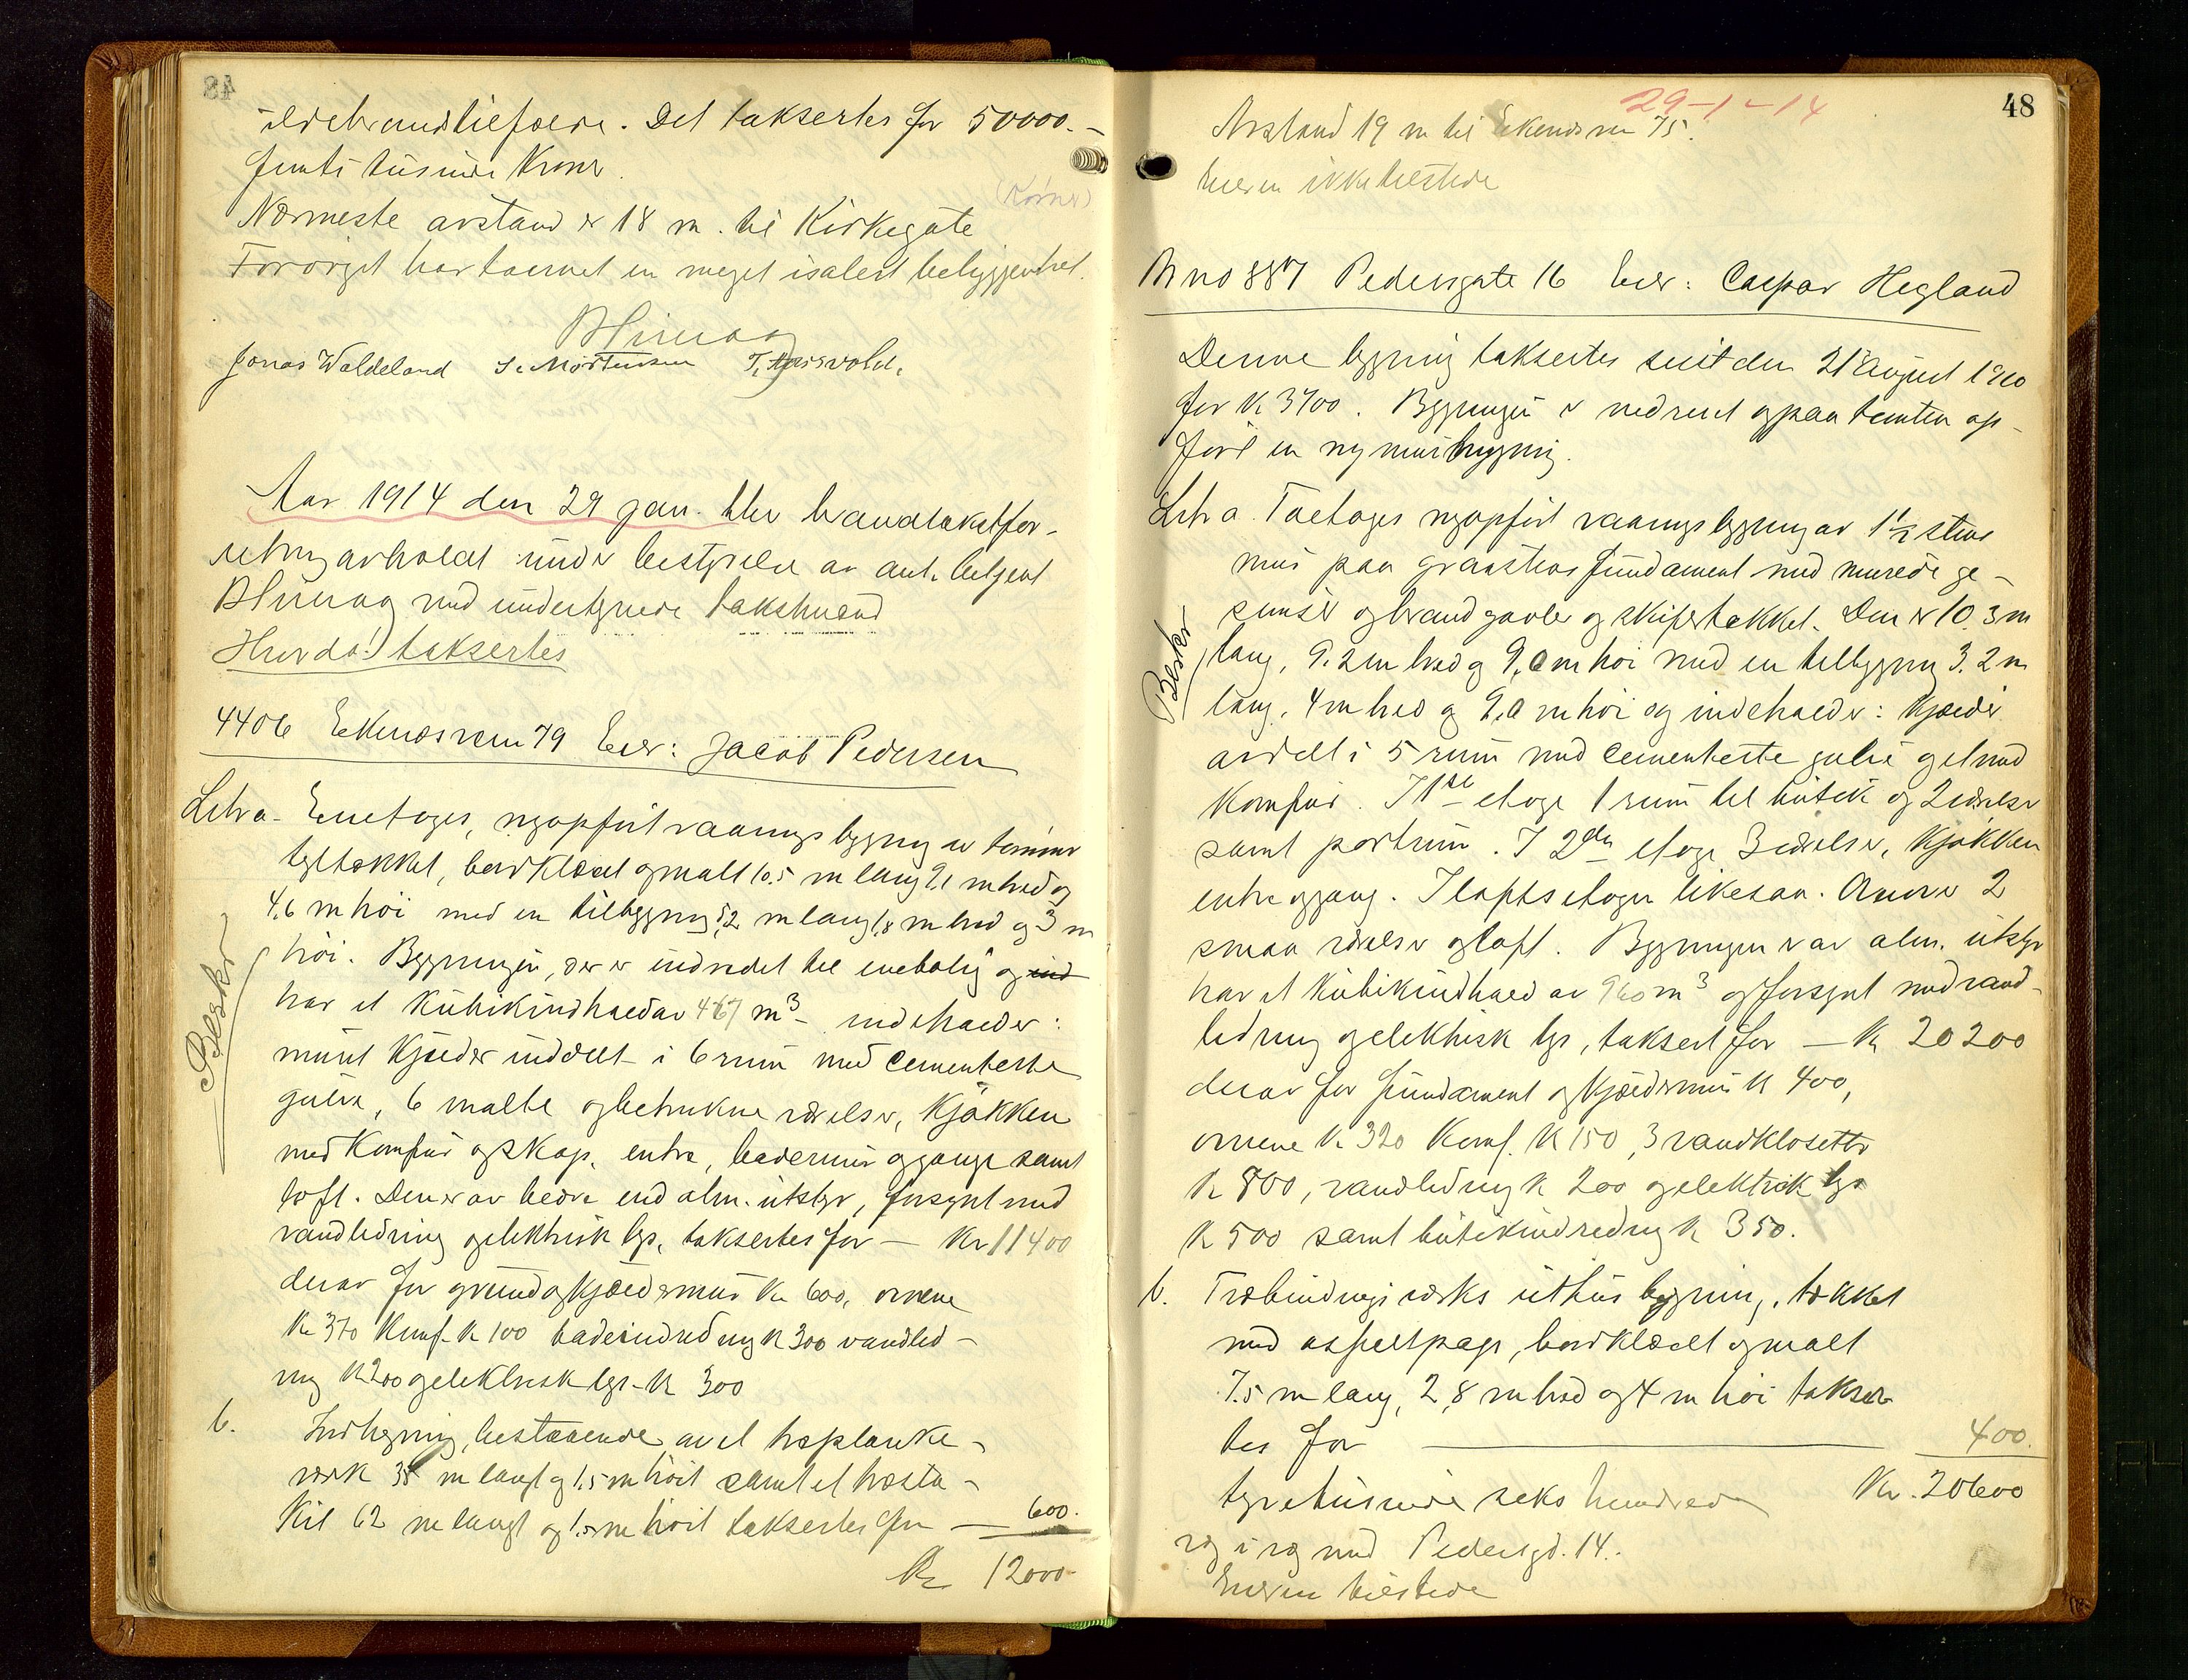 ildebrandstiefoere. Det takseres for 50000.-
femti tusinde Kroner.
(Körner)
Nærmeste avstand er 18 m. til Kirkegate
Forøvrigt har tarnet en meget isolert beliggenhet.
Jonas Waldeland S. Mortensen T.
Aar 1914 den 29 jan. blev brandtakstfor-
retning avholdt under bestyrelse av aut. betjent
med undertegnede takstmænd
Hvorda! taksertes
4406 Ekenæsveien 79 Eier: Jacob Pedersen
Litr a. Enetages, nyopført vaanings bygning av tømmer
tegltækket, bordklædt og malt 10.5 m lang 9,1 m bred og
4,6 m høi med en tilbygning 5,2 m lang 1,8 m bred og 3 m
høi. Bygningen, der er indredet til enebolig og ind
har et Kubikindhold av 467 m³ - indeholder:
muret Kjælder inddelt i 6 rum med cementerte
gulve, 6 malte og betrukne værelser, Kjøkken
med Komfur og skap, entre, baderum og gange samt
loft. Den er av bedre end alm. utstyr, forsynt med
vandledning og elektrisk lys, taksertes for - Kr 11400
derav for grund og kjældermur Kr 600, ovnene
Kr 370 Komf. Kr 100 badeindredning Kr 300 vandled-
ning Kr 200 og elektrisk lys - Kr 300
b. Indhegning, bestaaende av et træplanke-
værk 38 m langt og 1.5 m høit samt et træsta-
Kit 62 m langt og 1.5 m høit taksertes for — 600.
Kr 12000-
Beskr
48
29-1-14
Avstand 19 m til Ekenæsvn 75.
Eieren ikke tilstede
M no 887 Pedersgate 16 Eier: Caspar Hegland
Denne bygning taksertes sidst den 21 august 1910
for Kr 3700. Bygningen er nedrevet og paa tomten op-
ført en ny murbygning.
Litr a. Toetages nyopført vaanings bygning av 1½ stens
mur paa graastens fundament med murede ge-
simser og brandgavler og skifertækket. Den er 10.3 m
lang, 9.2 m bred og 9,0 m høi med en tilbygning 3.2 m
lang, 4 m bred og 9,0 m høi og indeholder: Kjælder
avdelt i 5 rum med cementerte gulve og et med
Komfur. I 1ste etage 1 rum til butik og 2 værelser
samt portrum. I 2den etage 3 værelser, Kjøkken
entre og gang. I loftsetagen likesaa. Over er 2
smaa værelser og loft. Bygningen er av alm. utstyr
har et Kubikindhold av 960 m³ og forsynt med vand-
ledning og elektrisk lys, taksert for — Kr 20200
derav for fundament og kjældermur Kr 400,
ovnene Kr 320 Komf. Kr 150, 3 vandklosetter
Kr 800, vandledning Kr 200 og elektrisk lys
Kr 500 samt butikindredning Kr 350.
b. Træbindingsværks uthus bygning, tækket
med asfaltpap, bordklædt og malt
7.5 m lang, 2,8 m bred og 4 m høi takser-
tes for — 400.
tyvetusinde seks hundrede Kr. 20600
væg i væg med Pedersgd. 14.
Eieren tilstede
Beskr